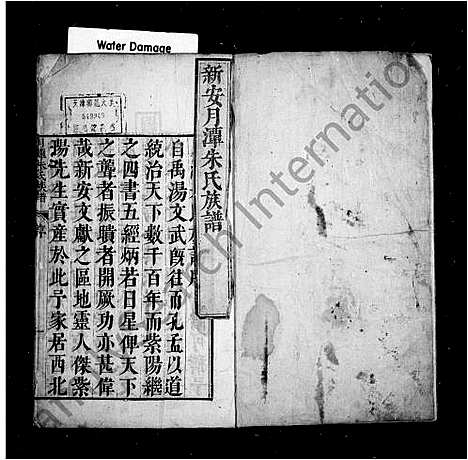 Water Damage
新安月潭朱氏族譜
自禹湯文武旣往而孔孟以道
統治天下數千百年而紫陽繼
之四書五經炳若日星俾天下
之聾者振聵者開厥功亦甚偉
哉新安文獻之區地靈人傑紫
陽先生實産於此予家居西北